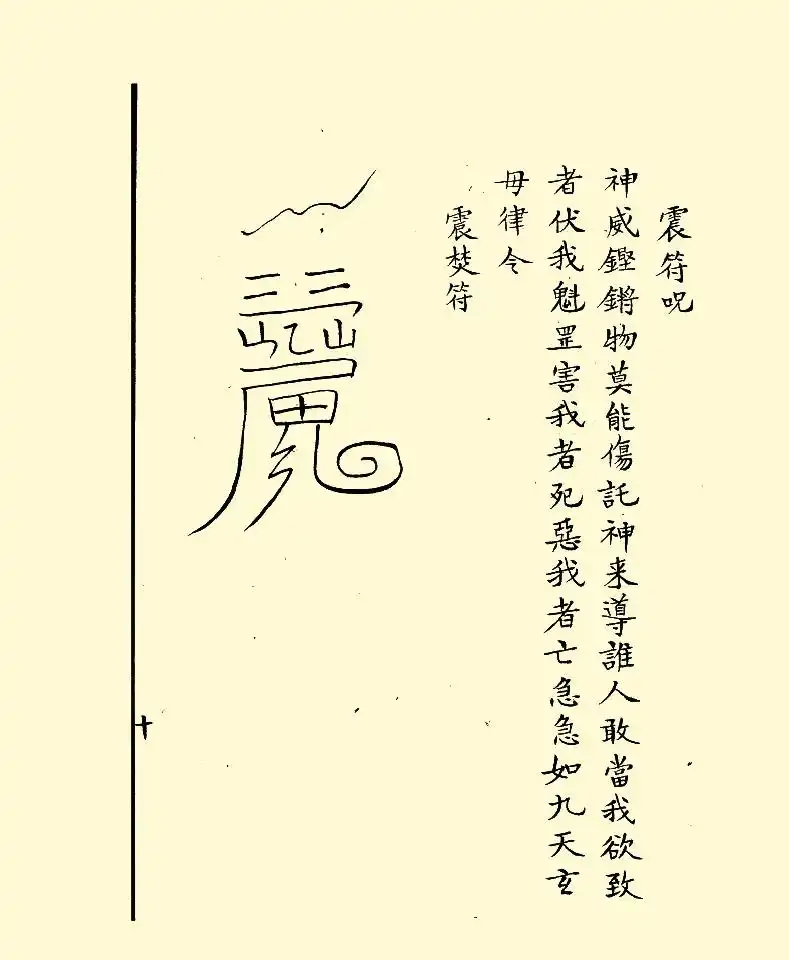 震符呪
神威鏗鏘物莫能傷託神来導誰人敢當我欲致
者伏我魁罡害我者死惡我者亡急急如九天玄
毋律令
震焚符
十